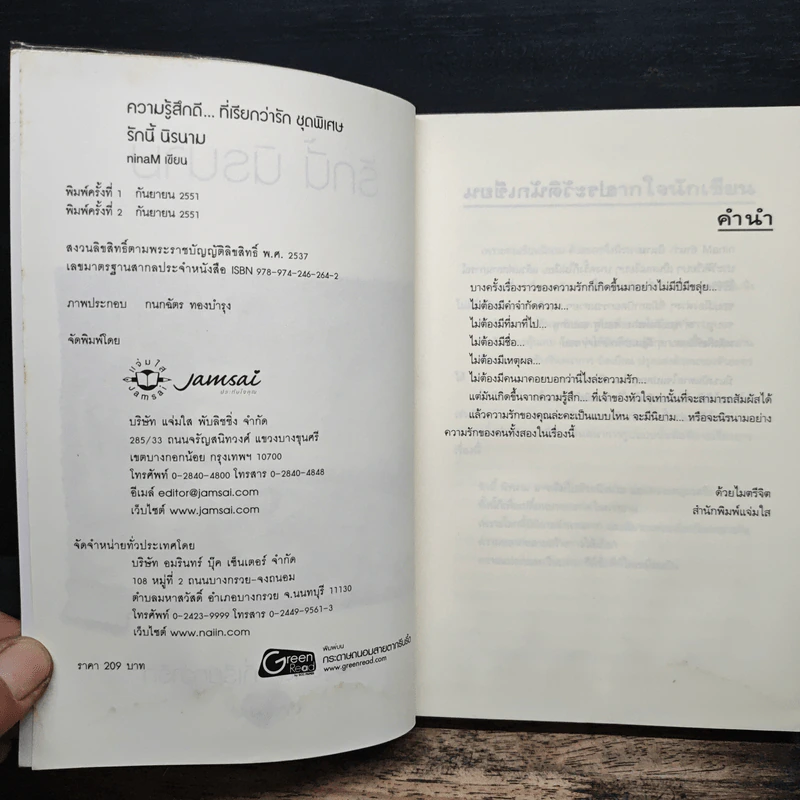 ความรู้สึกดี... ที่เรียกว่ารัก ชุดพิเศษ
รักนี้ นิรนาม
ninaM เขียน
พิมพ์ครั้งที่ 1 กันยายน 2551
พิมพ์ครั้งที่ 2 กันยายน 2551
สงวนลิขสิทธิ์ตามพระราชบัญญัติลิขสิทธิ์ พ.ศ. 2537
เลขมาตรฐานสากลประจำหนังสือ ISBN 978-974-246-264-2
ภาพประกอบ กนกฉัตร ทองบำรุง
จัดพิมพ์โดย
แจ่มใส
Jamsai
Jamsai
บริษัท แจ่มใส พับลิชชิ่ง จำกัด
285/33 ถนนจรัญสนิทวงศ์ แขวงบางขุนศรี
เขตบางกอกน้อย กรุงเทพฯ 10700
โทรศัพท์ 0-2840-4800 โทรสาร 0-2840-4848
อีเมล์ editor@jamsai.com
เว็บไซต์ www.jamsai.com
จัดจำหน่ายทั่วประเทศโดย
บริษัท อมรินทร์ บุ๊ค เซ็นเตอร์ จำกัด
108 หมู่ที่ 2 ถนนบางกรวย-จงถนอม
ตำบลมหาสวัสดิ์ อำเภอบางกรวย จ.นนทบุรี 11130
โทรศัพท์ 0-2423-9999 โทรสาร 0-2449-9561-3
เว็บไซต์ www.naiin.com
ราคา 209 บาท
Green Read
พิมพ์บน
กระดาษถนอมสายตากรีนรี้ด
www.greenread.com
คำนำ
บางครั้งเรื่องราวของความรักก็เกิดขึ้นมาอย่างไม่มีปี่มีขลุ่ย...
ไม่ต้องมีคำจำกัดความ...
ไม่ต้องมีที่มาที่ไป...
ไม่ต้องมีชื่อ...
ไม่ต้องมีเหตุผล...
ไม่ต้องมีคนมาคอยบอกว่านี่ไงล่ะความรัก...
แต่มันเกิดขึ้นจากความรู้สึก... ที่เจ้าของหัวใจเท่านั้นที่จะสามารถสัมผัสได้
แล้วความรักของคุณล่ะคะเป็นแบบไหน จะมีนิยาม... หรือจะนิรนามอย่าง
ความรักของคนทั้งสองในเรื่องนี้
ด้วยไมตรีจิต
สำนักพิมพ์แจ่มใส